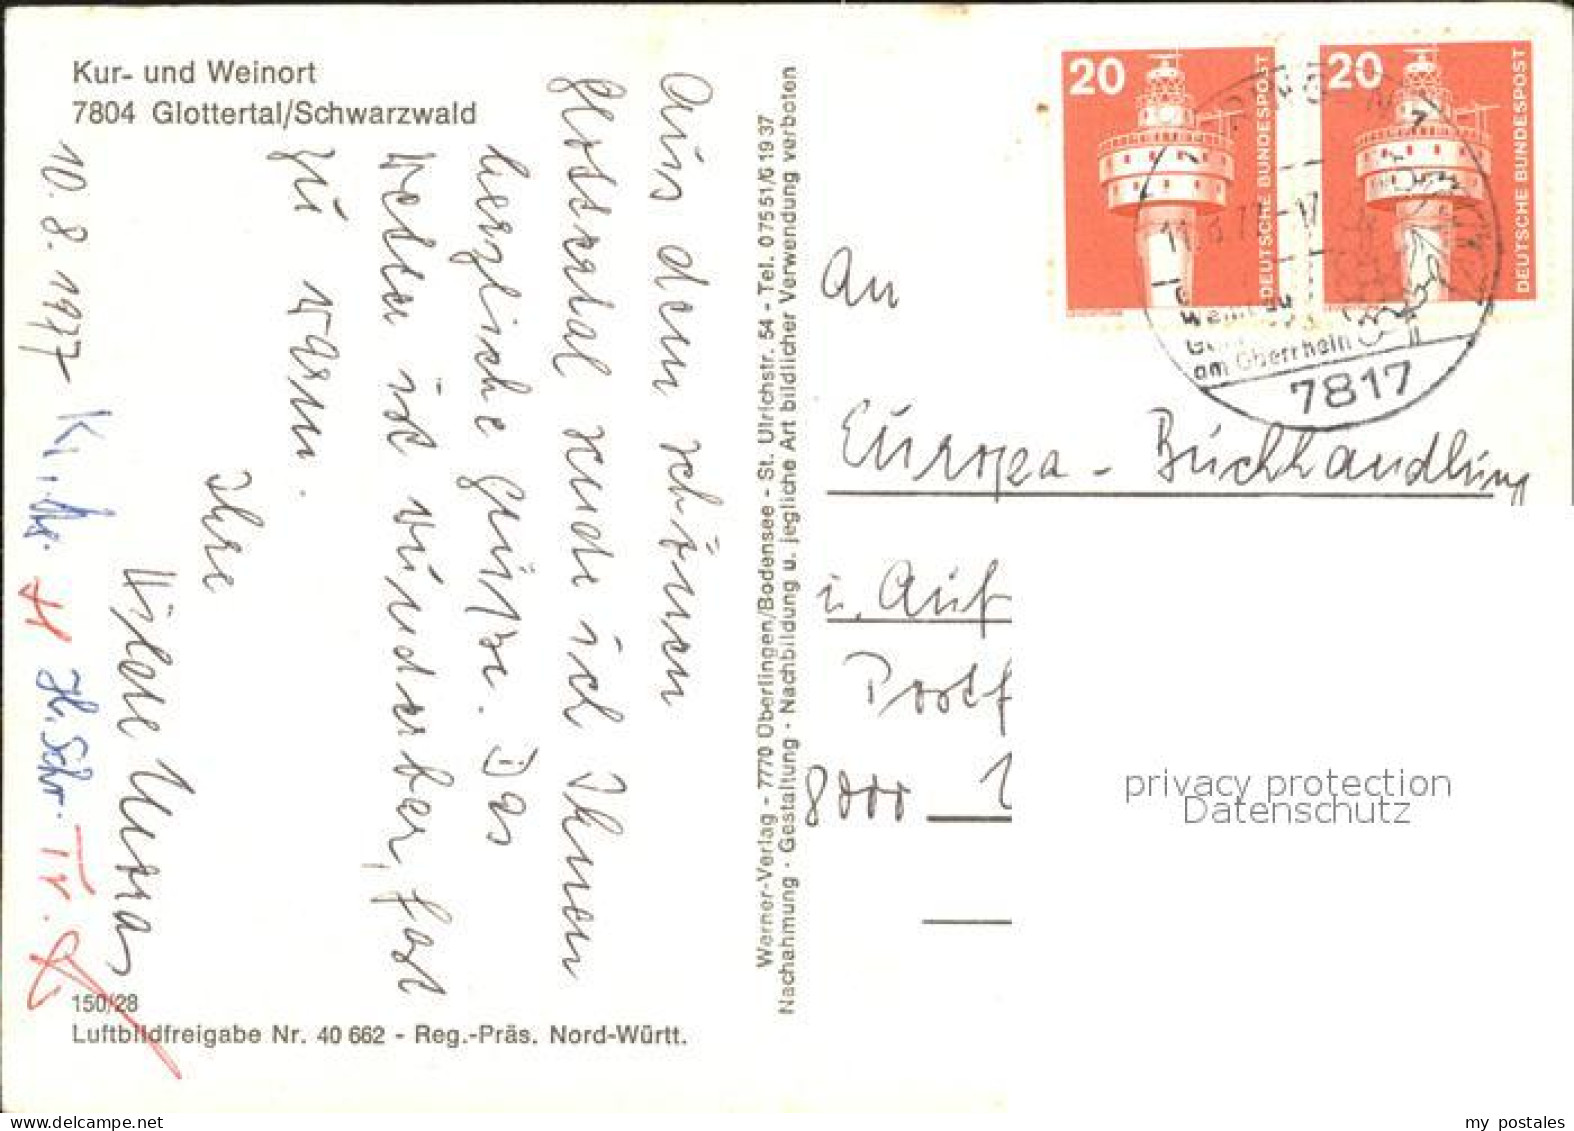 Kur- und Weinort
7804 Glottertal/Schwarzwald
10.8.1977
Aus dem schönen
Glottertal sende ich Ihnen
herzliche Grüsse. Das
Wetter ist wunderbar, fast
zu warm.
Ihre
150/28
Luftbildfreigabe Nr. 40 662 - Reg.-Präs. Nord-Württ.
Werner-Verlag - 7770 Überlingen/Bodensee - St. Ulrichstr. 54 - Tel. 07551/61937
Nachahmung · Gestaltung · Nachbildung u. jegliche Art bildlicher Verwendung verboten
20
DEUTSCHE BUNDESPOST
20
DEUTSCHE BUNDESPOST
am Oberrhein
7817
An
Europa - Buchhandlung
Postf
8000
privacy protection
Datenschutz
my postales